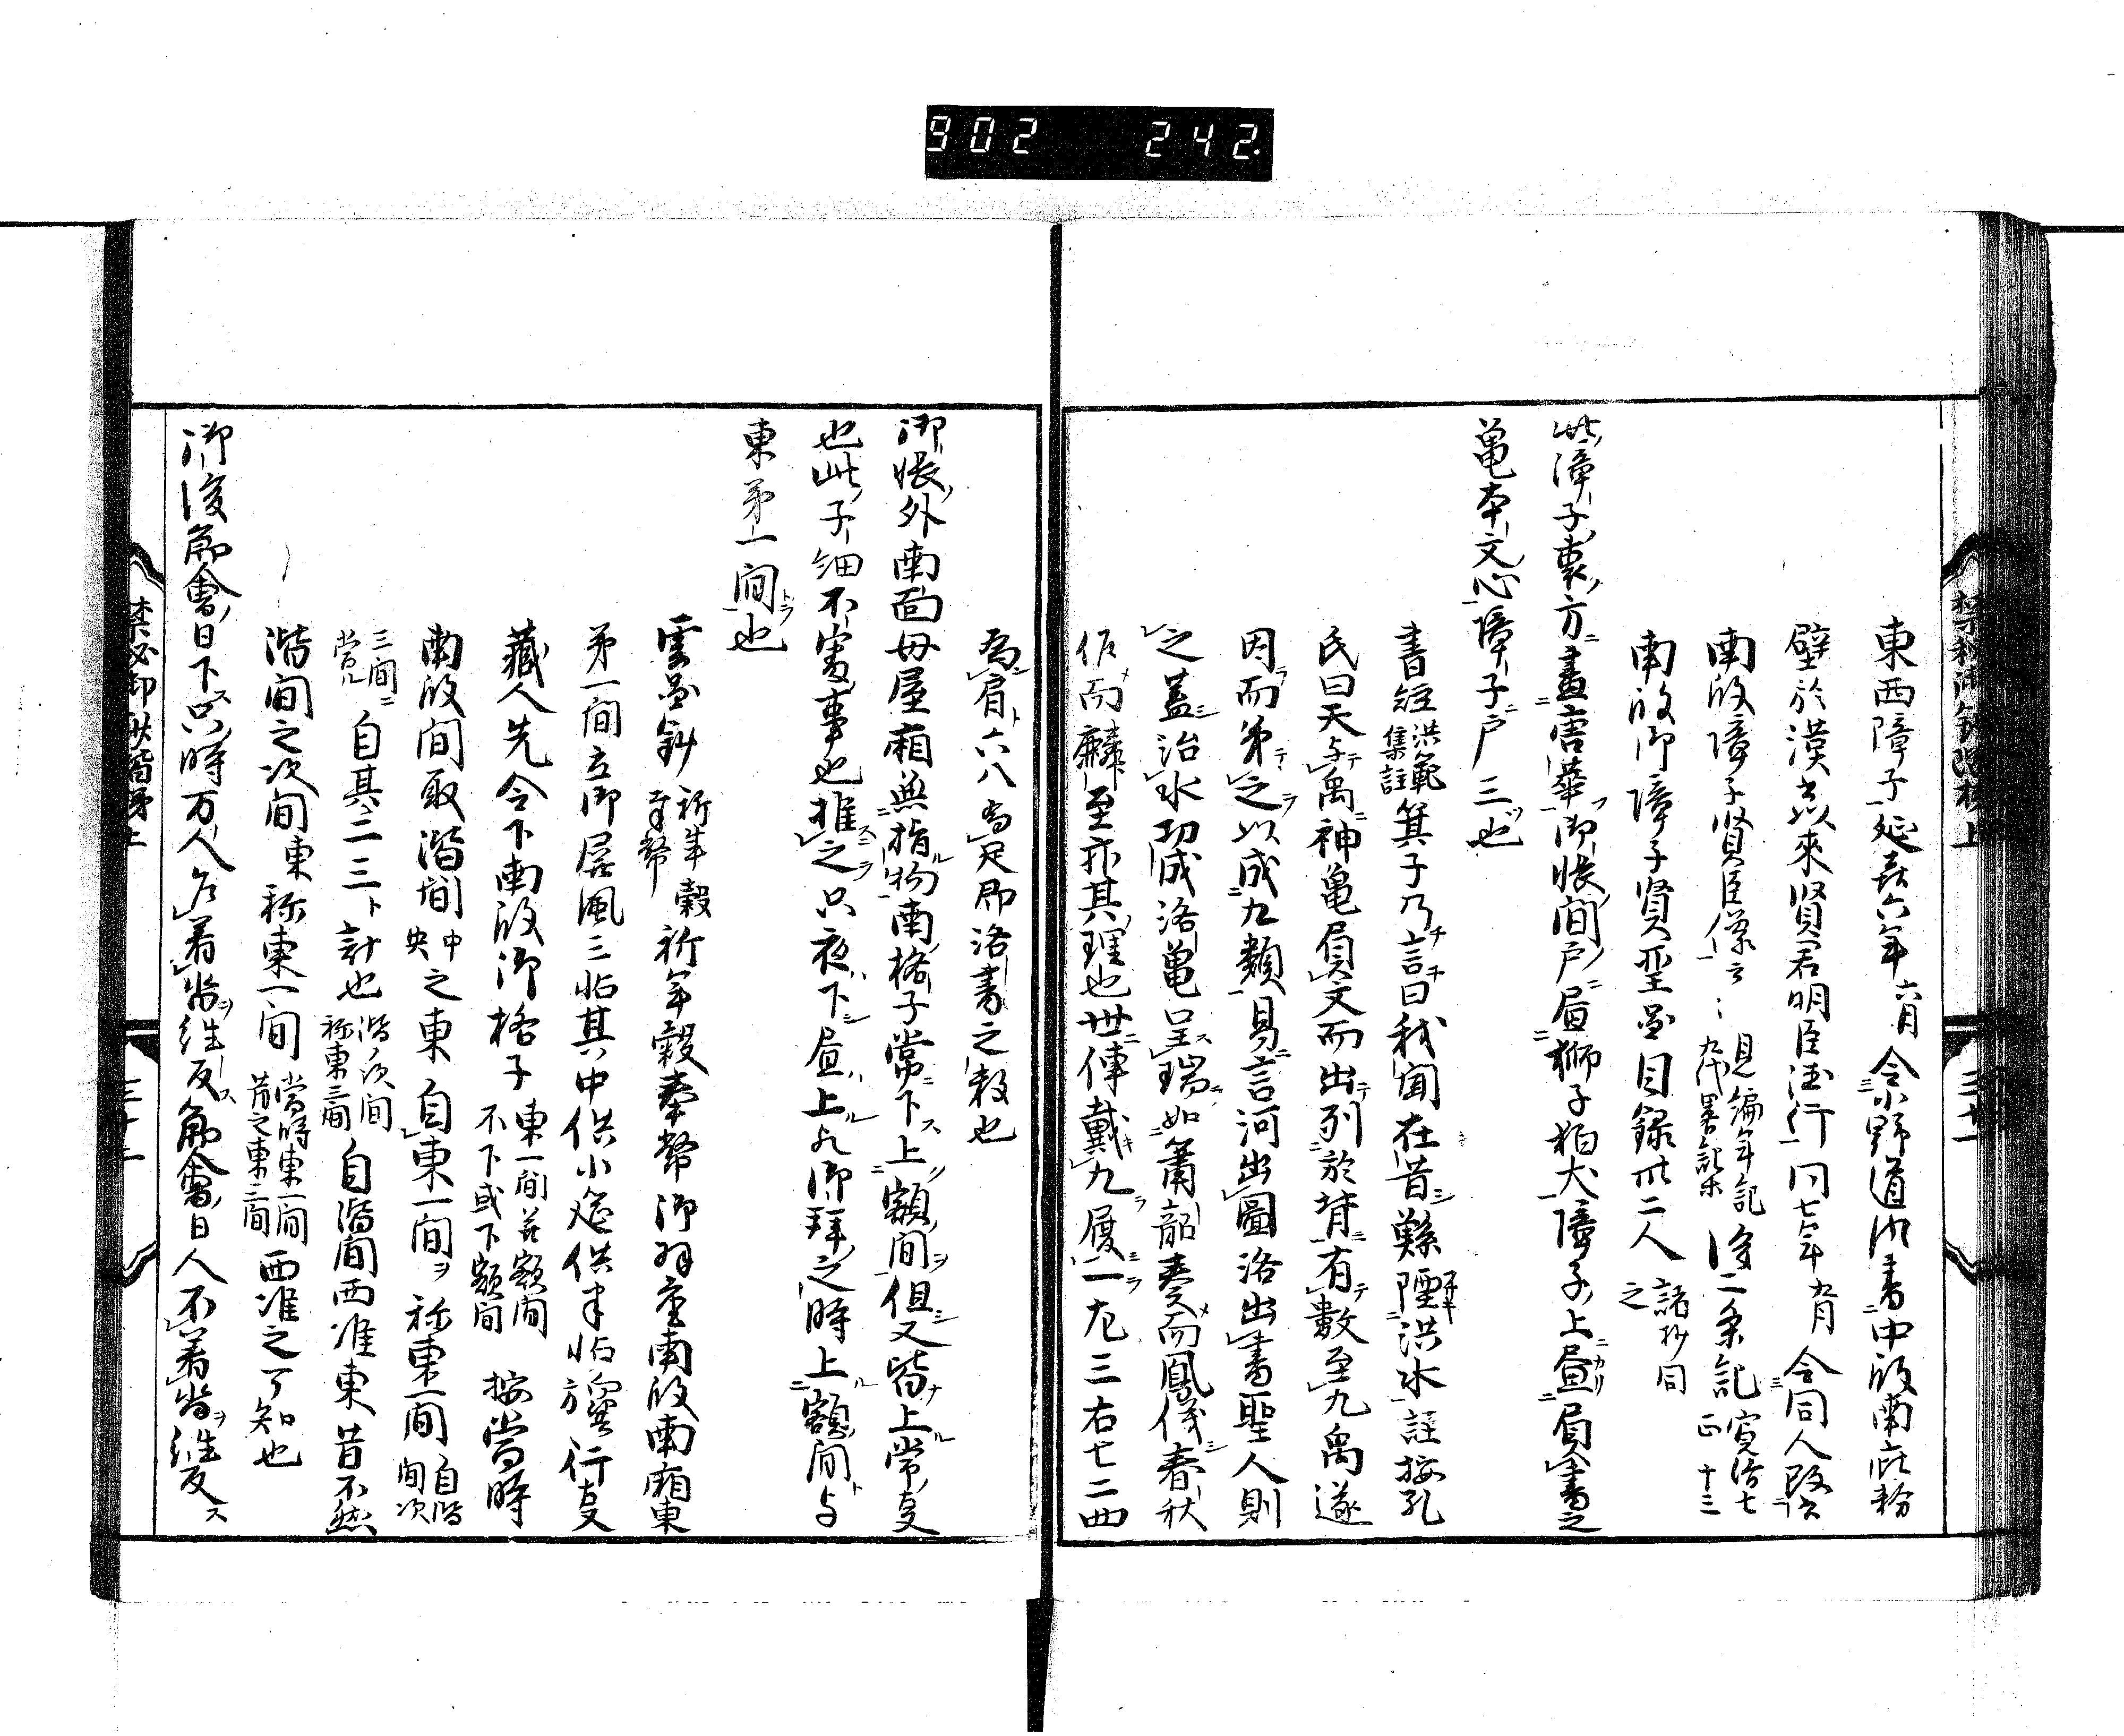 902 242.
東西障子延喜六年六月令小野道風書中殿南庇粉
壁於漢書以来賢君明臣徳行同七年九月令同人改
南殿障子賢臣像云々見編年記九代畧記等後二条記寛治七正十三
南殿御障子賢聖図目録廿二人諸抄同之
此障子裏ノ方ニ画唐華ヲ御帳間戸ニ画獅子狛犬障子上ニ画負書之
亀本文心障子ニ戸三也
書経洪範集註箕子乃言曰我聞在昔鯀陻洪水註按孔
氏曰天与禹神亀負文而出列於背有数至九禹遂
因而第之以成九類易言河出圖洛出書聖人則
之蓋治水功成洛亀呈瑞如簫韶奏而鳳儀春秋
作而麟至亦其理也世傳戴九履一左三右七二四
為肩六八為足即洛書之数也
御帳外南面母屋廂無指物南格子常下上額間但又皆上常事
也此子細不審事也推之只夜ハ下昼ハ上ル凡御拝之時上額間与
東第一間也
雲図鈔祈年穀奉幣祈年穀奉幣御拝座南殿南廂東
第一間立御屏風三帖其中供小筵供半帖
蔵人先令下南殿御格子東一間并額間不下或下額間按當時
南殿間取階間中央之東自東一間ヲ称東一間自階間次
三間ニ當ル自其二三ト計也階ノ次間称東三間自階間西准東昔不然
階間之次間東称東一間當時東一間昔之東三間西准之可知也
御後節會ノ日下ス只時万人不着沓ヲ往反ス節會ノ日人不着沓ヲ往反ス
三十一